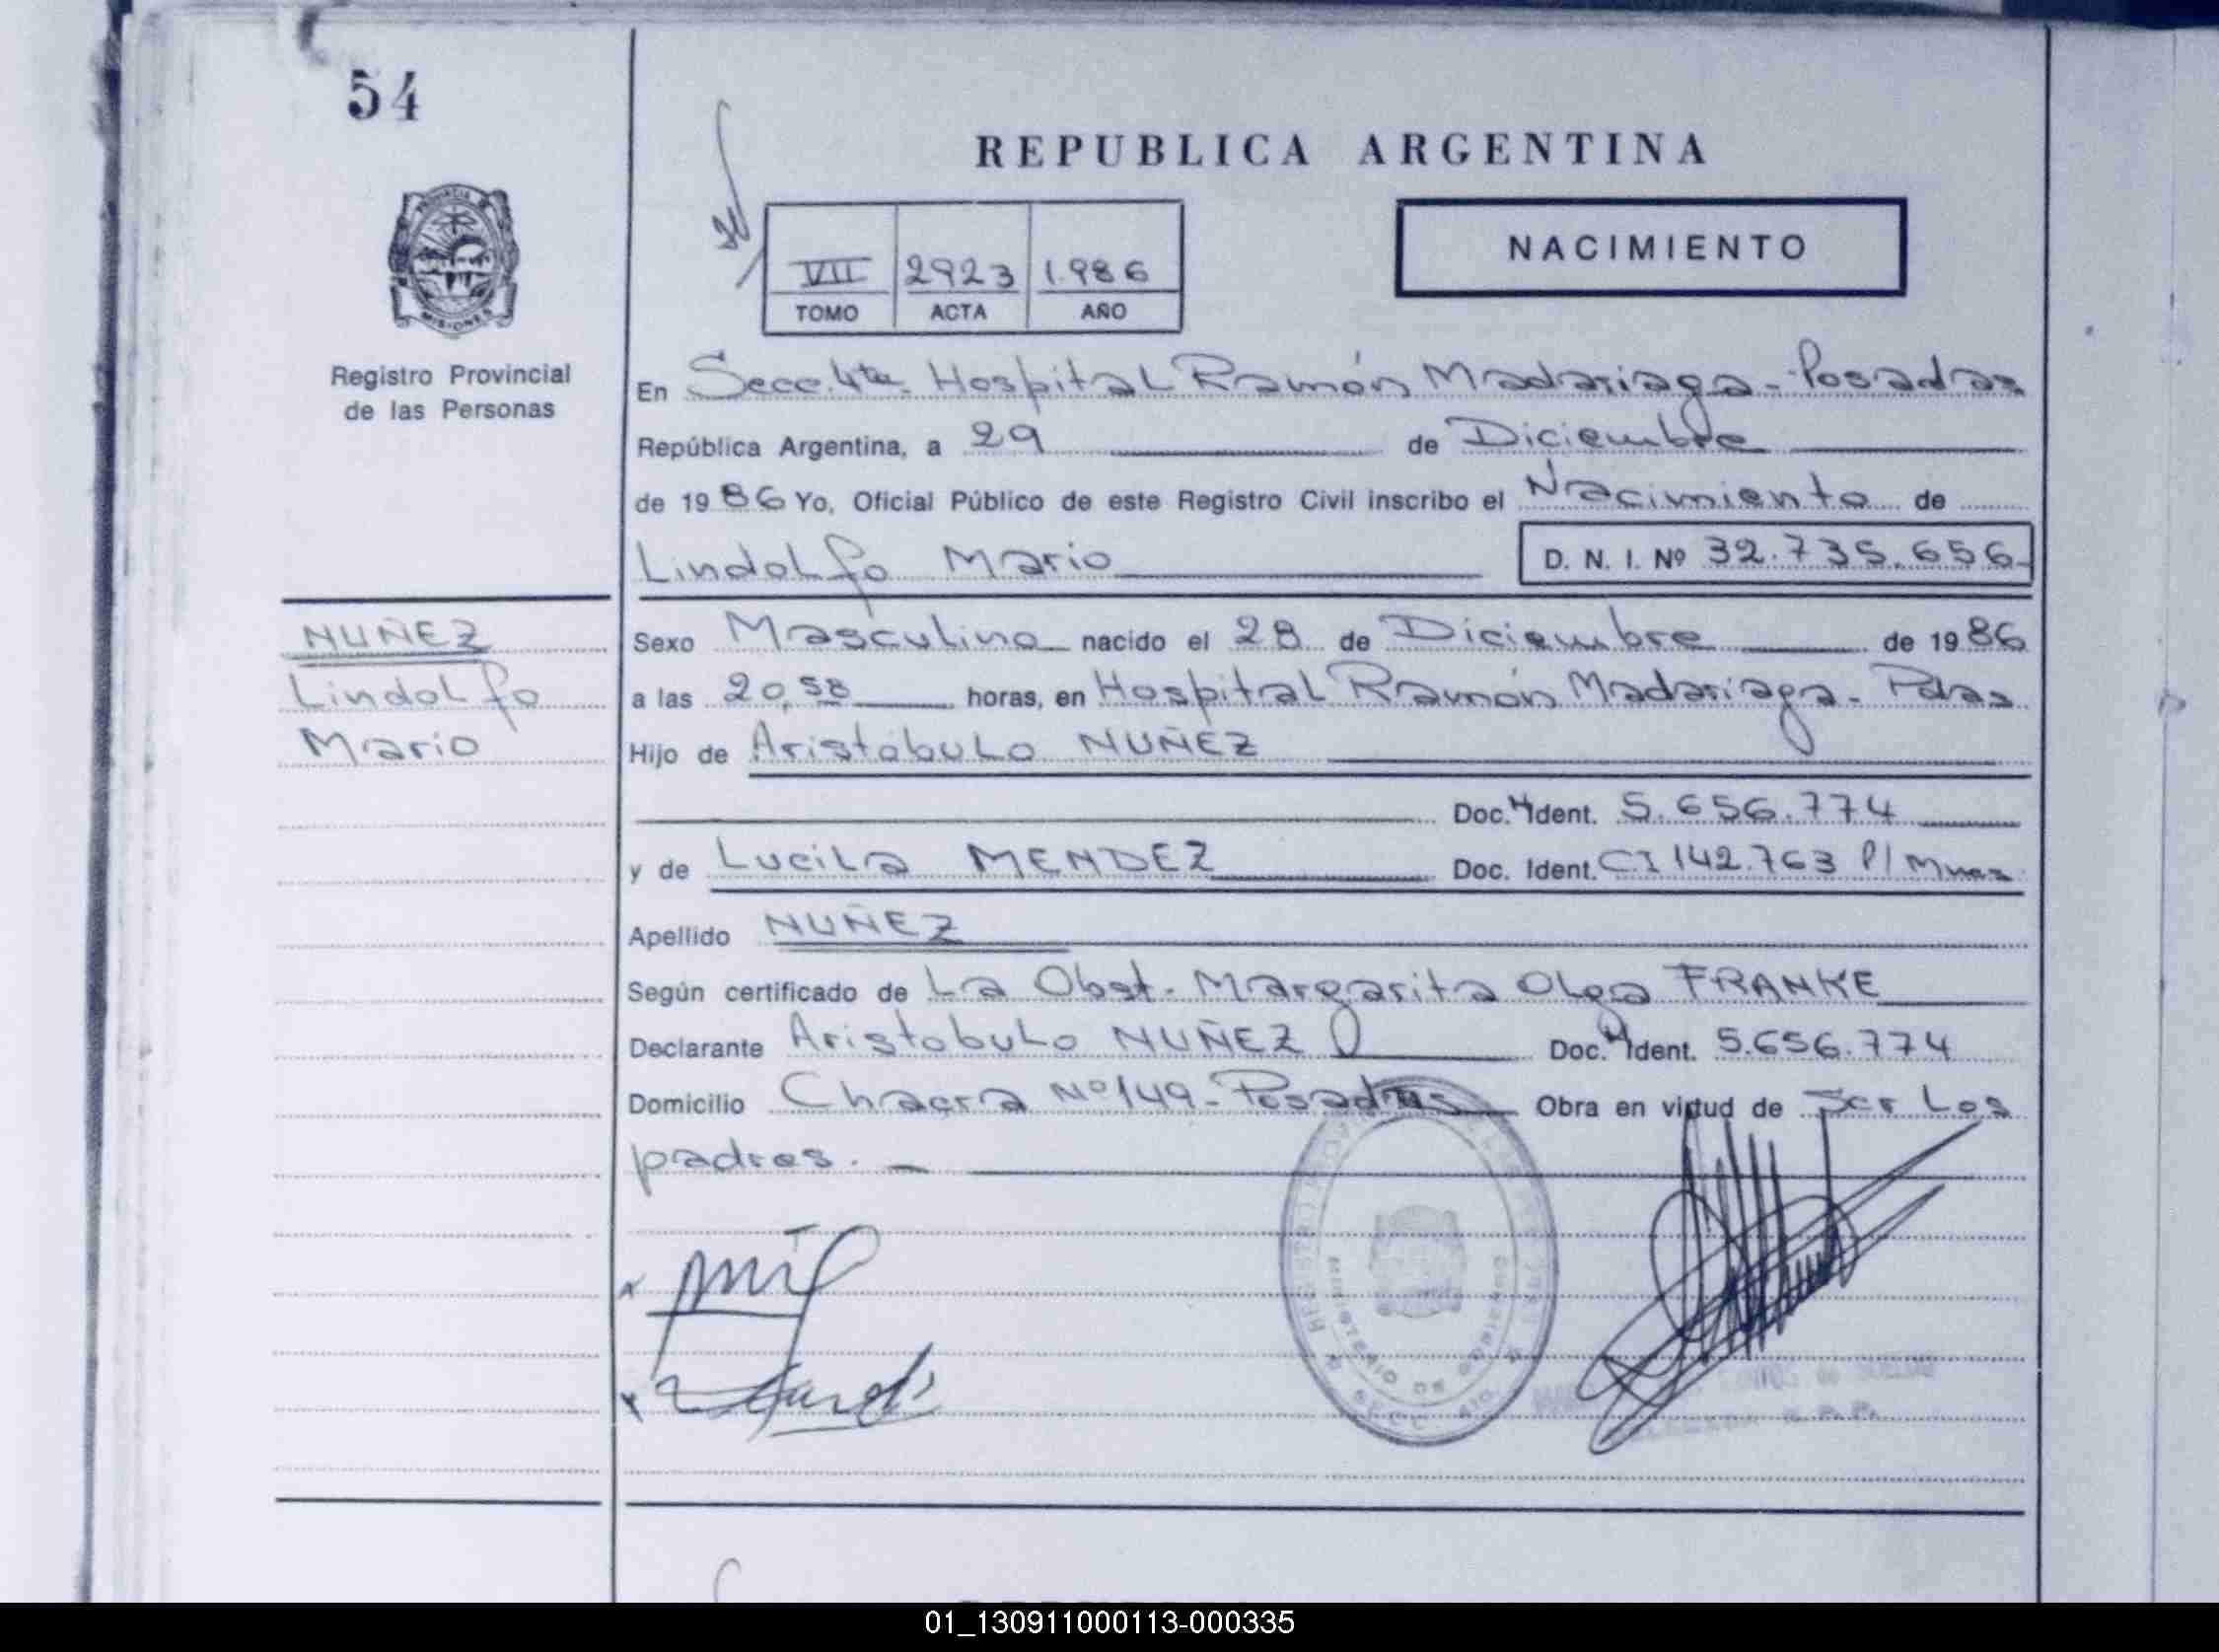 54
REPUBLICA ARGENTINA
NACIMIENTO
VII 2923 1.986
TOMO ACTA AÑO
PROVINCIA DE
MISIONES
Registro Provincial
de las Personas
En Secc. 4ta. Hospital Ramón Madariaga - Posadas
República Argentina, a 29 de Diciembre
de 1986 Yo, Oficial Público de este Registro Civil inscribo el Nacimiento de
Lindolfo Mario D. N. I. Nº 32.735.656
NUÑEZ
Lindolfo
Mario
Sexo Masculino nacido el 28 de Diciembre de 1986
a las 20,58 horas, en Hospital Ramón Madariaga - Pdas
Hijo de Aristóbulo NUÑEZ
Doc. Ident. 5.656.774
y de Lucila MENDEZ Doc. Ident. CI 142.763 P/ Mnes
Apellido NUÑEZ
Según certificado de La Obst. Margarita Olga FRANKE
Declarante Aristobulo NUÑEZ Doc. Ident. 5.656.774
Domicilio Chacra Nº 149 - Posadas Obra en virtud de ser los
padres. -
01_130911000113-000335